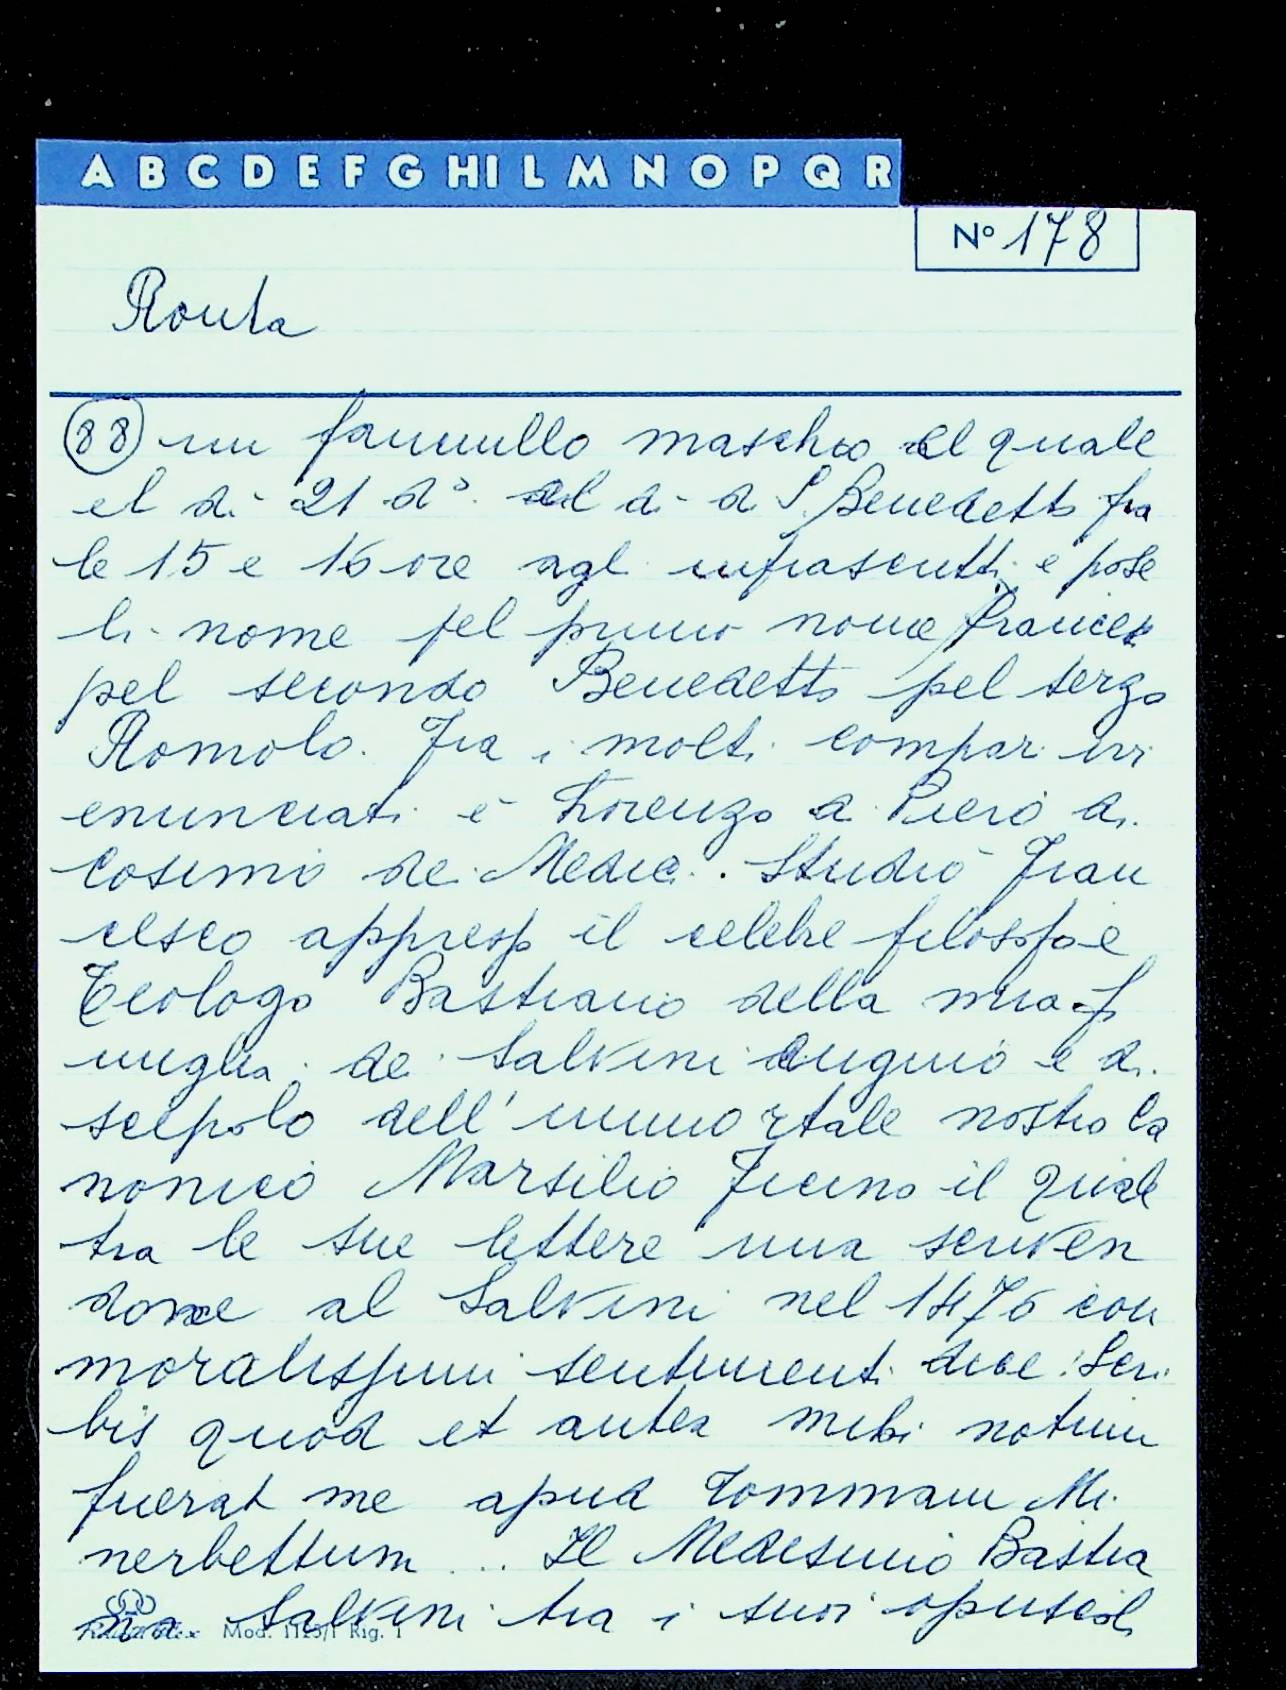 A B C D E F G HI L M N O P Q R
Nº 178
Ronta
88 un fanciullo maschio el quale
el di 21 do. al di di S. Benedetto fra
le 15 e 16 ore agl infrascritti e pose
li nome pel primo nome Francesc
pel secondo Benedetto pel terzo
Romolo. Fra i molti compari ivi
enunciati è Lorenzo di Piero di
Cosimo de Medici. Studiò Fran
cesco appresso il celebre filosofo e
Teologo Bastiano della mia f
miglia de Salvini cugino e di
scepolo dell' immortale nostro Ca
nonico Marsilio Ficino il quale
tra le sue lettere una scriven
done al Salvini nel 1476 con
moralissimi sentimenti dice: Scri
bis quod et antea mihi notum
fuerat me apud Tommam Mi
nerbettum ... Il Medesimo Bastia
no Salvini tra i suoi opuscoli
Mod. 1125/1 Rig. 1